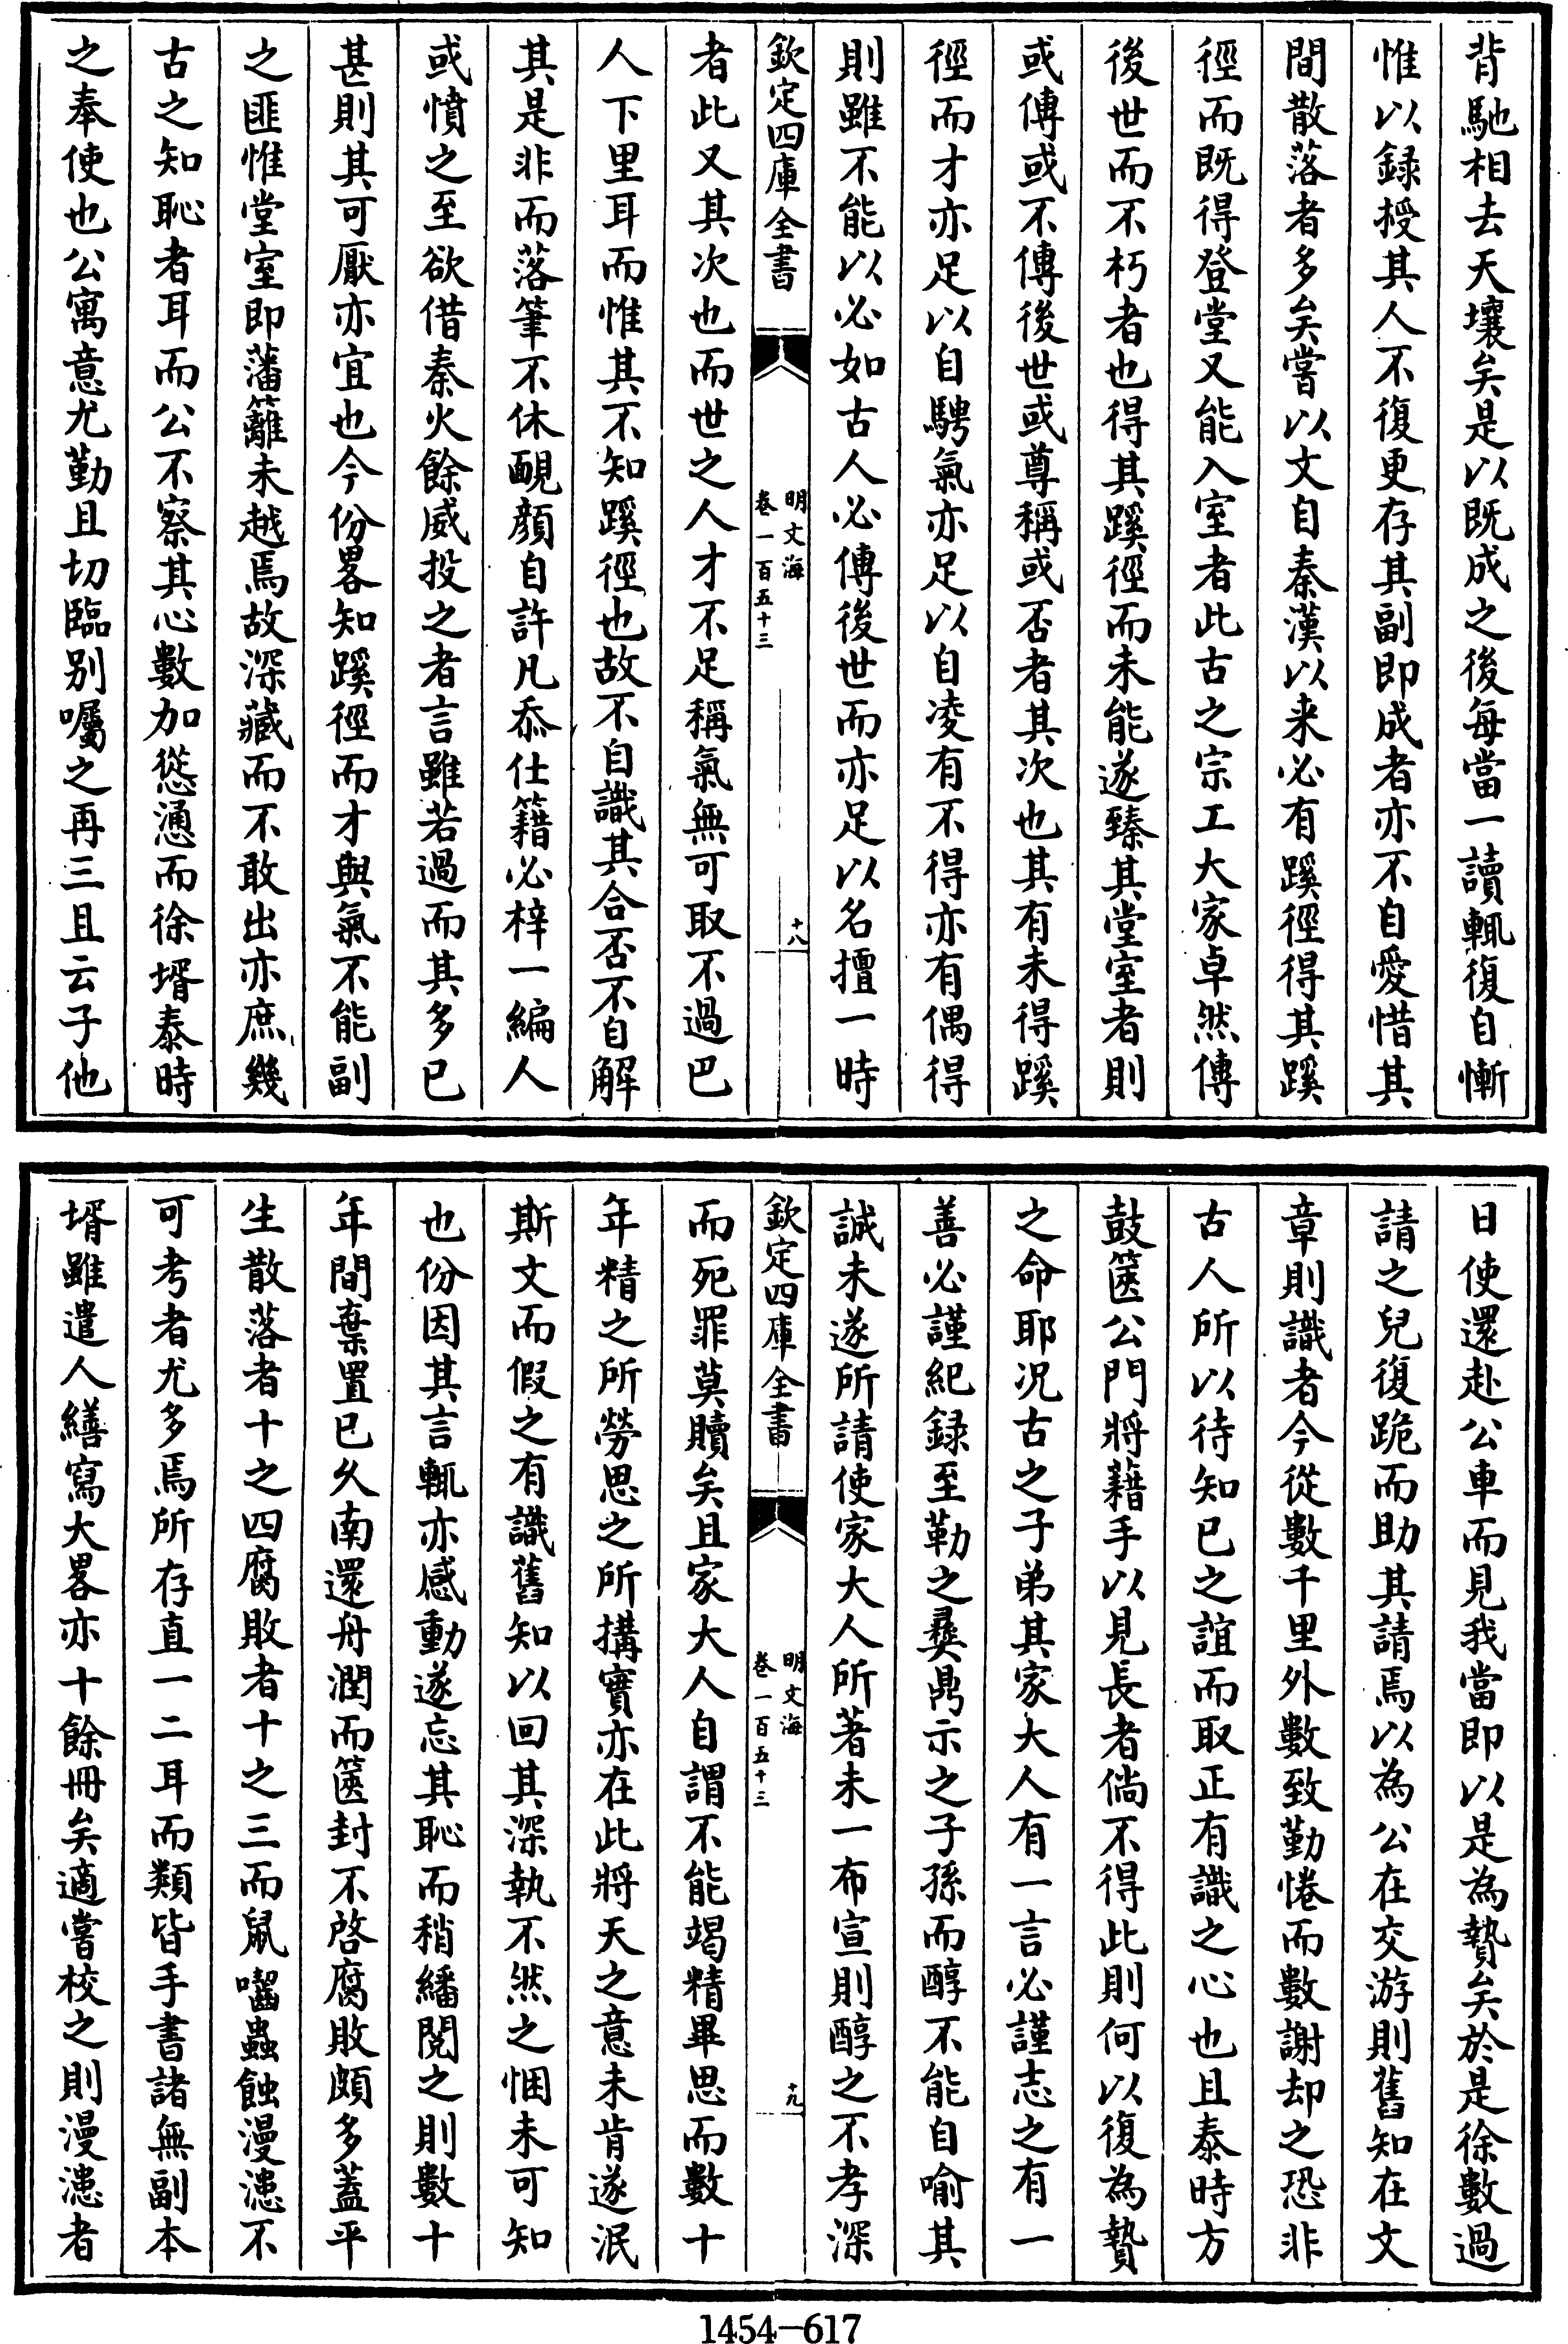 背馳相去天壤矣是以既成之後每當一讀輒復自慚
惟以録授其人不復更存其副即成者亦不自愛惜其
間散落者多矣嘗以文自秦漢以来必有蹊徑得其蹊
徑而既得登堂又能入室者此古之宗工大家卓然傳
後世而不朽者也得其蹊徑而未能遂臻其堂室者則
或傳或不傳後世或尊稱或否者其次也其有未得蹊
徑而才亦足以自騁氣亦足以自凌有不得亦有偶得
則雖不能以必如古人必傳後世而亦足以名擅一時
欽定四庫全書
明文海
卷一百五十三
十八
者此又其次也而世之人才不足稱氣無可取不過巴
人下里耳而惟其不知蹊徑也故不自識其合否不自解
其是非而落筆不休靦顔自許凡忝仕籍必梓一編人
或憤之至欲借秦火餘威投之者言雖若過而其多已
甚則其可厭亦宜也今份畧知蹊徑而才與氣不能副
之匪惟堂室即藩籬未越焉故深藏而不敢出亦庶幾
古之知恥者耳而公不察其心數加慫慂而徐壻泰時
之奉使也公寓意尤勤且切臨别囑之再三且云子他
日使還赴公車而見我當即以是為贄矣於是徐數過
請之兒復跪而助其請焉以為公在交游則舊知在文
章則識者今從數千里外數致勤惓而數謝却之恐非
古人所以待知已之誼而取正有識之心也且泰時方
鼓篋公門將藉手以見長者倘不得此則何以復為贄
之命耶况古之子弟其家大人有一言必謹志之有一
善必謹紀録至勒之彜鼎示之子孫而醇不能自喻其
誠未遂所請使家大人所著未一布宣則醇之不孝深
欽定四庫全書
明文海
卷一百五十三
十九
而死罪莫贖矣且家大人自謂不能竭精畢思而數十
年精之所勞思之所搆實亦在此將天之意未肯遂泯
斯文而假之有識舊知以回其深執不然之悃未可知
也份因其言輒亦感動遂忘其恥而稍繙閲之則數十
年間棄置已久南還舟潤而篋封不啓腐敗頗多蓋平
生散落者十之四腐敗者十之三而鼠嚙蟲蝕漫漶不
可考者尤多焉所存直一二耳而類皆手書諸無副本
壻雖遣人繕寫大畧亦十餘冊矣適嘗校之則漫漶者
1454—617